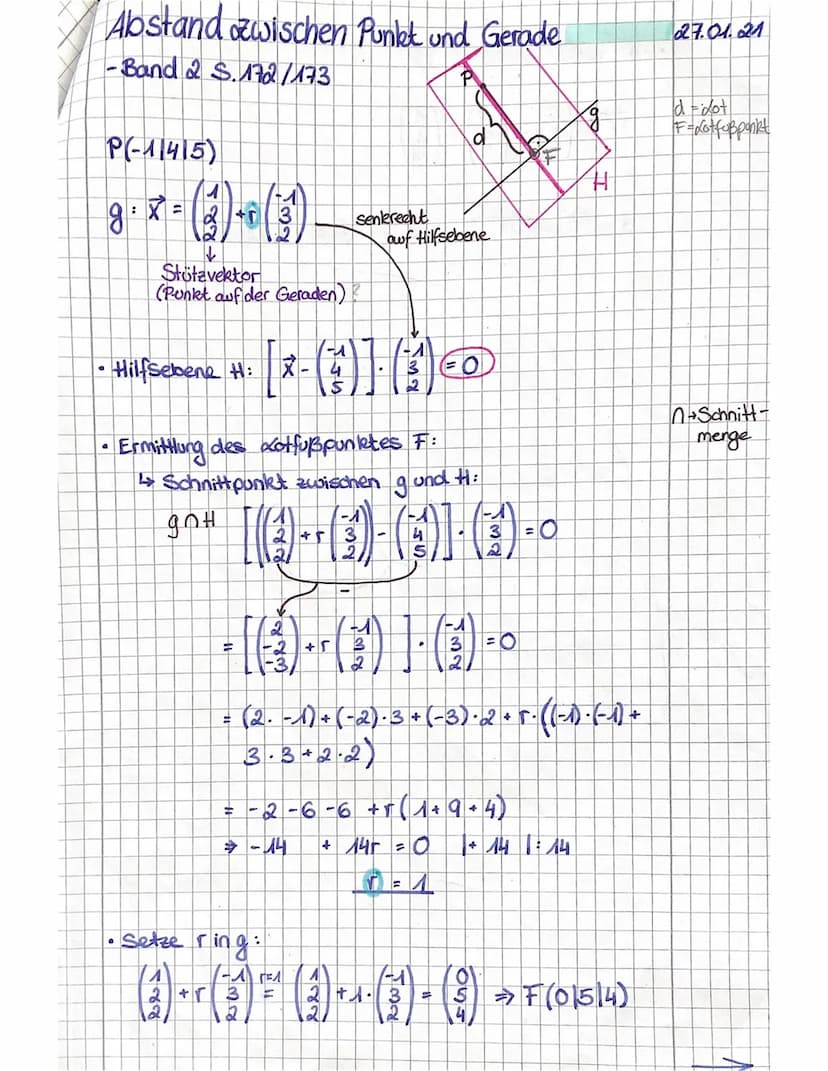 Abstand zwischen Punkt und Gerade 27.01.21
- Band 2 S.172/173
P
g
d
F
H
d = Lot
F = Lotfußpunkt
P(-1|4|5)
g: x⃗ = (1 2 2) + r (-1 3 2)
senkrecht
auf Hilfsebene
↓
Stützvektor
(Punkt auf der Geraden) ?
• Hilfsebene H: [x⃗ - (-1 4 5)] · (-1 3 2) = 0
∩→Schnitt-
menge
• Ermittlung des Lotfußpunktes F:
↳ Schnittpunkt zwischen g und H:
g∩H [((1 2 2) + r (-1 3 2)) - (-1 4 5)] · (-1 3 2) = 0
-
= [(2 -2 -3) + r (-1 3 2)] · (-1 3 2) = 0
= (2 · -1) + (-2) · 3 + (-3) · 2 + r · ((-1) · (-1) +
3 · 3 + 2 · 2)
= -2 -6 -6 + r (1 + 9 + 4)
⇒ -14 + 14r = 0 |+ 14 |: 14
r = 1
• Setze r in g:
(1 2 2) + r (-1 3 2) r=1 = (1 2 2) + 1 · (-1 3 2) = (0 5 4) ⇒ F(0|5|4)
→